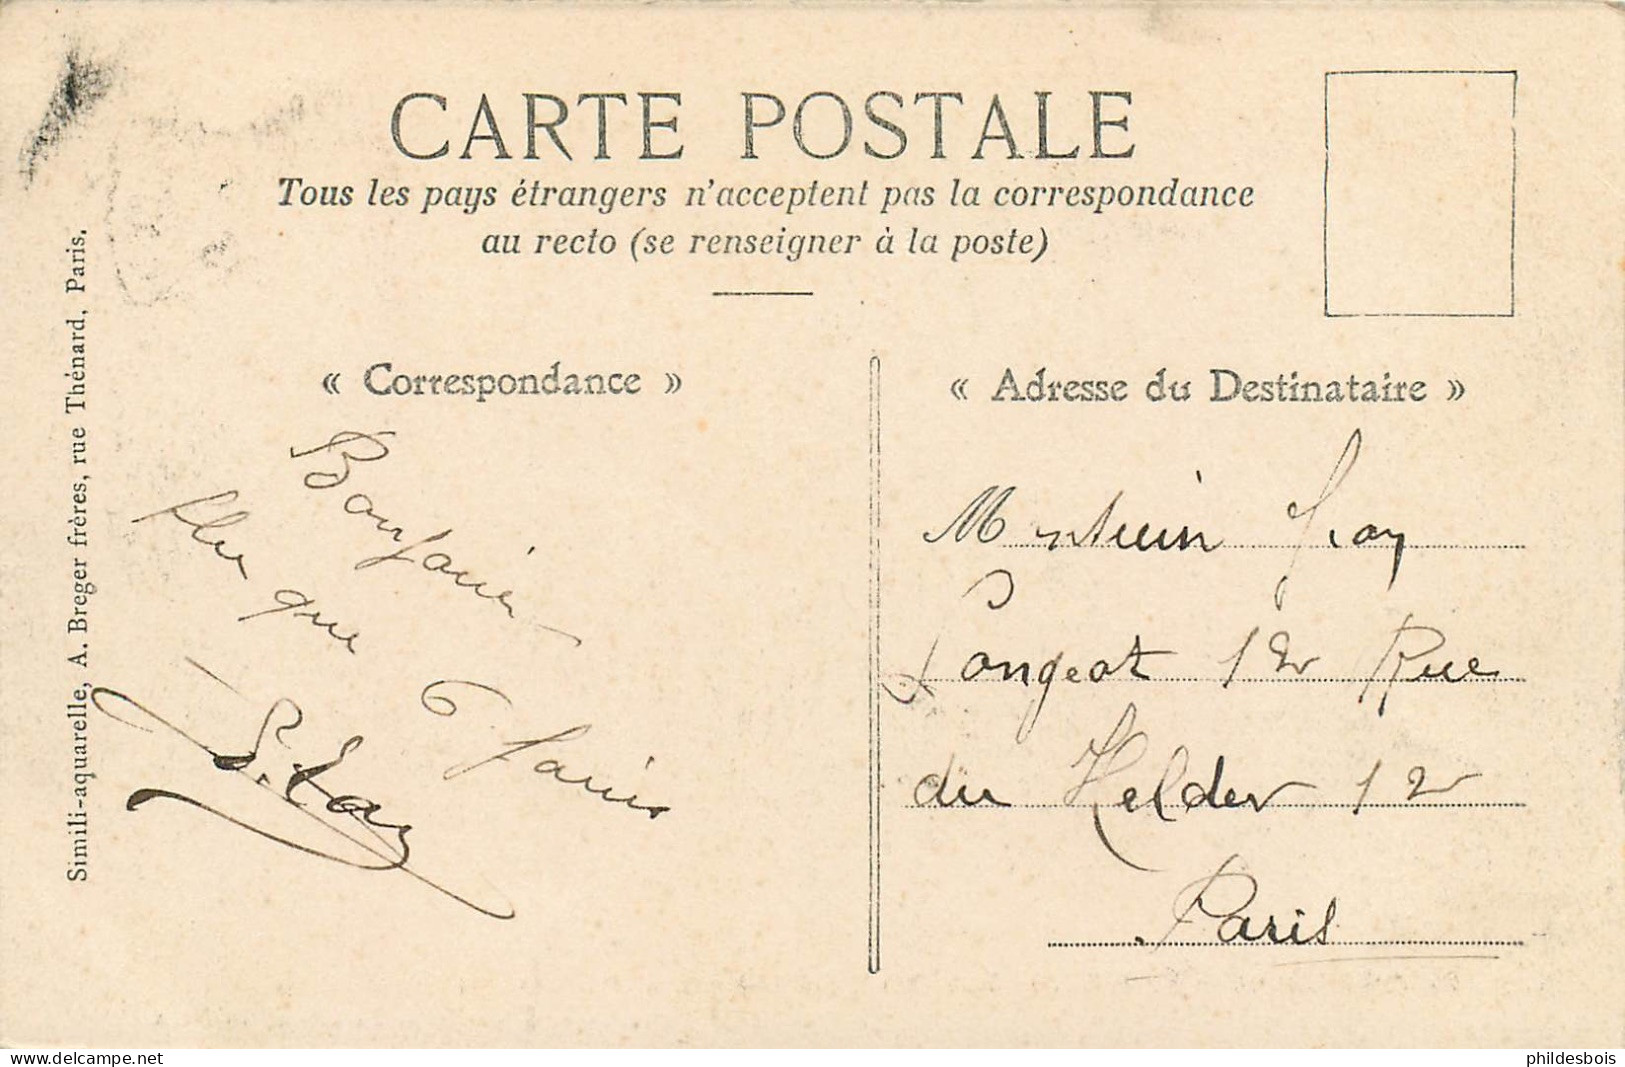 CARTE POSTALE
Tous les pays étrangers n'acceptent pas la correspondance
au recto (se renseigner à la poste)
« Correspondance »
« Adresse du Destinataire »
Simili-aquarelle, A. Breger frères, rue Thénard, Paris.
plus que
6
Rue
du Helder 12
Paris
phildesbois
www.delcampe.net